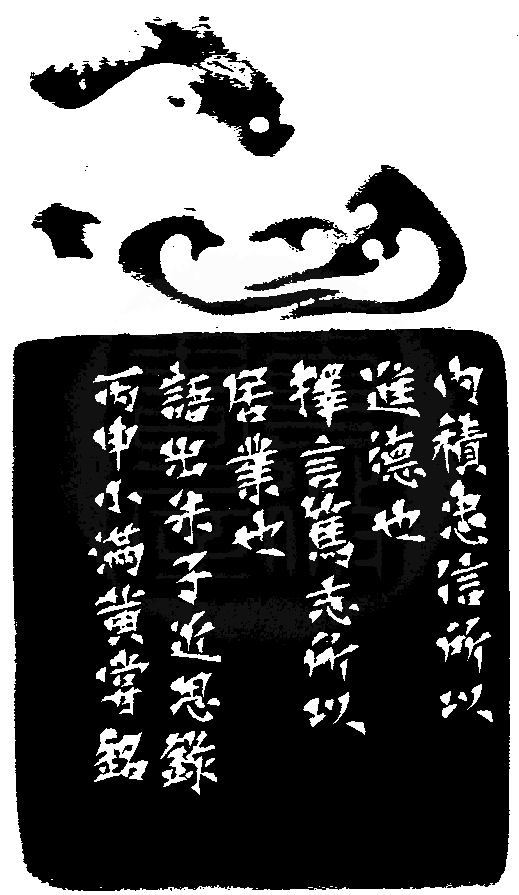 內積忠信所以
進德也
擇言篤志所以
居業也
語出朱子近思錄
丙申小滿黃嘗銘